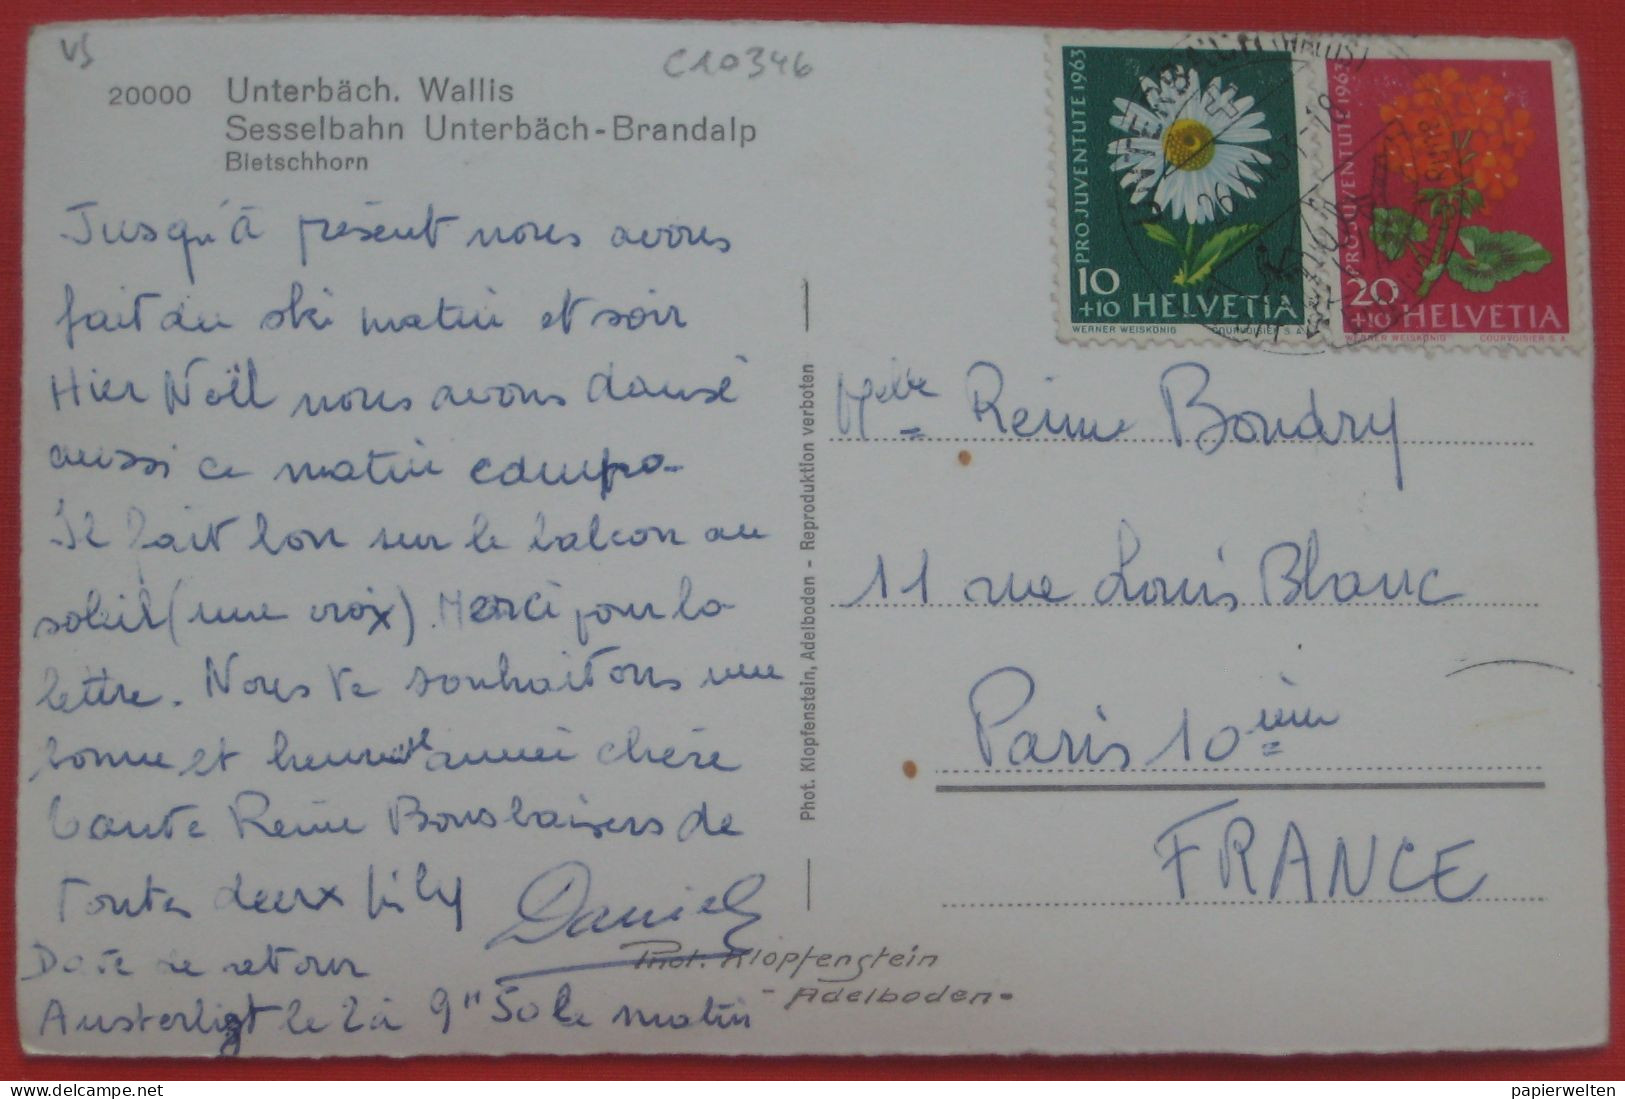 VS
C10346
20000 Unterbäch. Wallis
Sesselbahn Unterbäch-Brandalp
Bietschhorn
Jusqu'à présent nous avons
fait du ski matin et soir
Hier Noël nous avons dansé
aussi ce matin
Il fait bon sur le balcon au
soleil (une croix). Merci pour la
lettre. Nous te souhaitons une
bonne et heureuse année chère
tante Reine Bons baisers de
toutes deux
Daniel
Date de retour
Austerligt le 2 à 9" 50 le matin
Phot. Klopfenstein
- Adelboden -
Phot. Klopfenstein, Adelboden - Reproduktion verboten
PRO JUVENTUTE 1963
10
+10 HELVETIA
WERNER WEISKÖNIG COURVOISIER S.A.
PRO JUVENTUTE 1963
20
+10 HELVETIA
WERNER WEISKÖNIG COURVOISIER S.A.
UNTERBÄCH (WALLIS)
Melle Reine Boudry
11 rue Louis Blanc
Paris 10ième
FRANCE
papierwelten